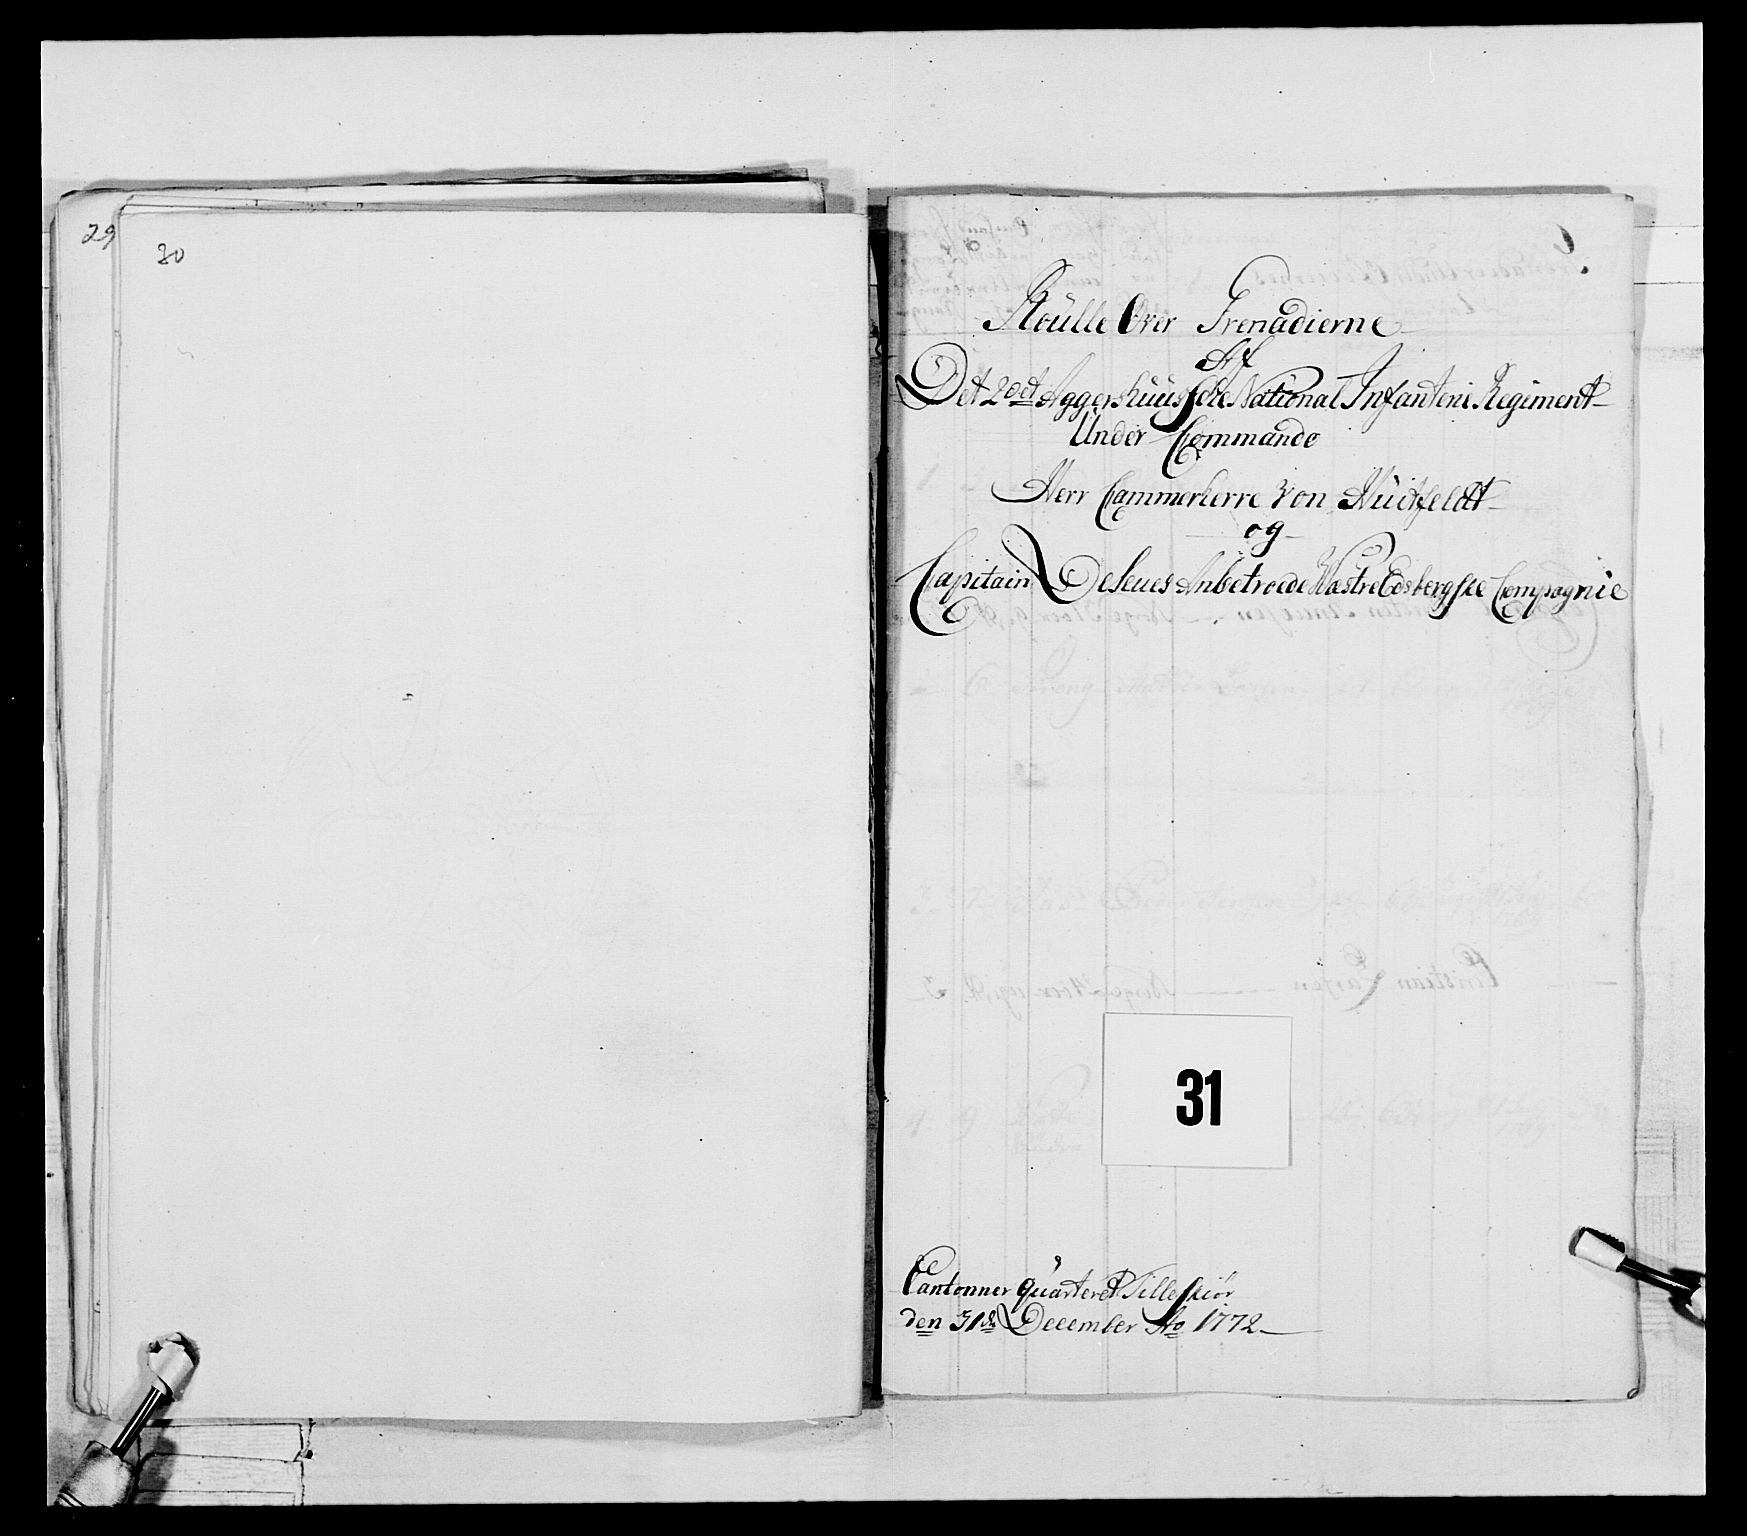 29
30
Roülle Over Grenadierne
Af
Det 2det Aggershüüsche National Infanterie Regiment
Ünder Commando
Herr Cammerherre Von Hüitfeldt
og
Capitain De Seues Anbetroede Wæstre Edsbergske Compagnie
31
Cantonner Quarteret Tilleskiör
den 31te December Ao 1772